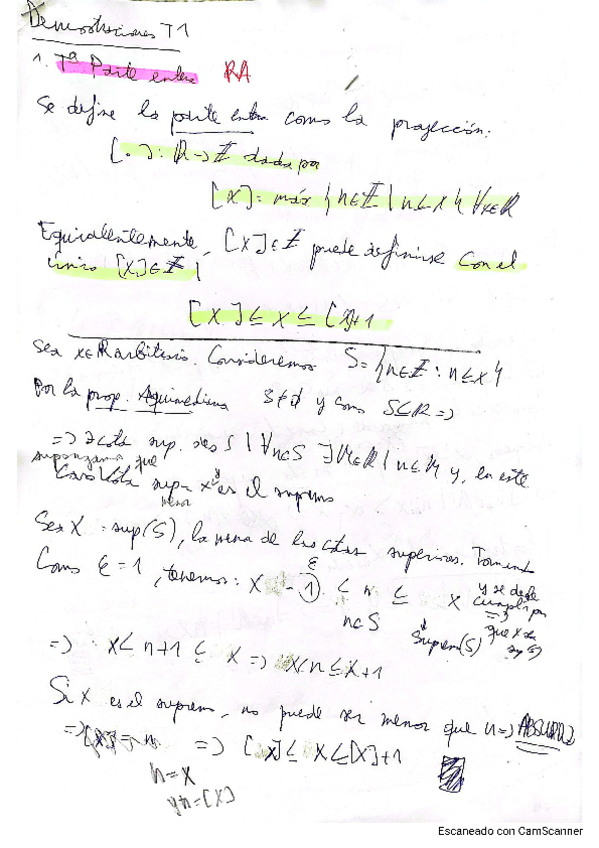 Demostraciones T1
1. Tª Parte entera RA
Se define la parte entera como la proyección:
[·]: R→Z dada por
[x]: máx {n∈Z | n≤x} ∀x∈R
Equivalentemente, [x]∈Z puede definirse con el
único [x]∈Z |
[x] ≤ x ≤ [x]+1
Sea x∈R arbitrario. Consideremos S={n∈Z : n≤x}
Por la prop. Arquimediana S≠∅ y como S⊆R =>
=> ∃ cota sup. de S | ∀n∈S ∃M∈R | n≤M y, en este
supongamos que
caso cota sup. x es el supremo
menor
Sea X = sup(S), la menor de las cotas superiores. Tomando
Como ε=1, tenemos: X - 1 < n ≤ X y se debe cumplir
ε
n∈S
Suprem(S)
=> x < n+1 ≤ x => x<n≤x+1
Si X es el supremo, no puede ser menor que n => ABSURDO
=> [x]=n => [x] ≤ X ≤ [x]+1
n=x
n=[x]
Escaneado con CamScanner